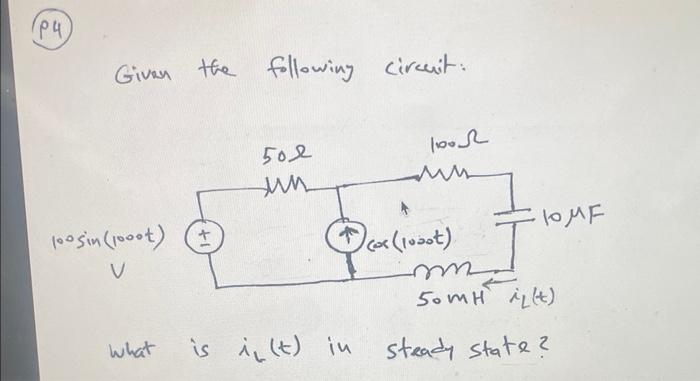 P4
Given the following circuit:
50Ω
100Ω
100sin(1000t)
V
+
-
cos(1000t)
10 μF
50mH iL(t)
What is iL(t) in steady state?